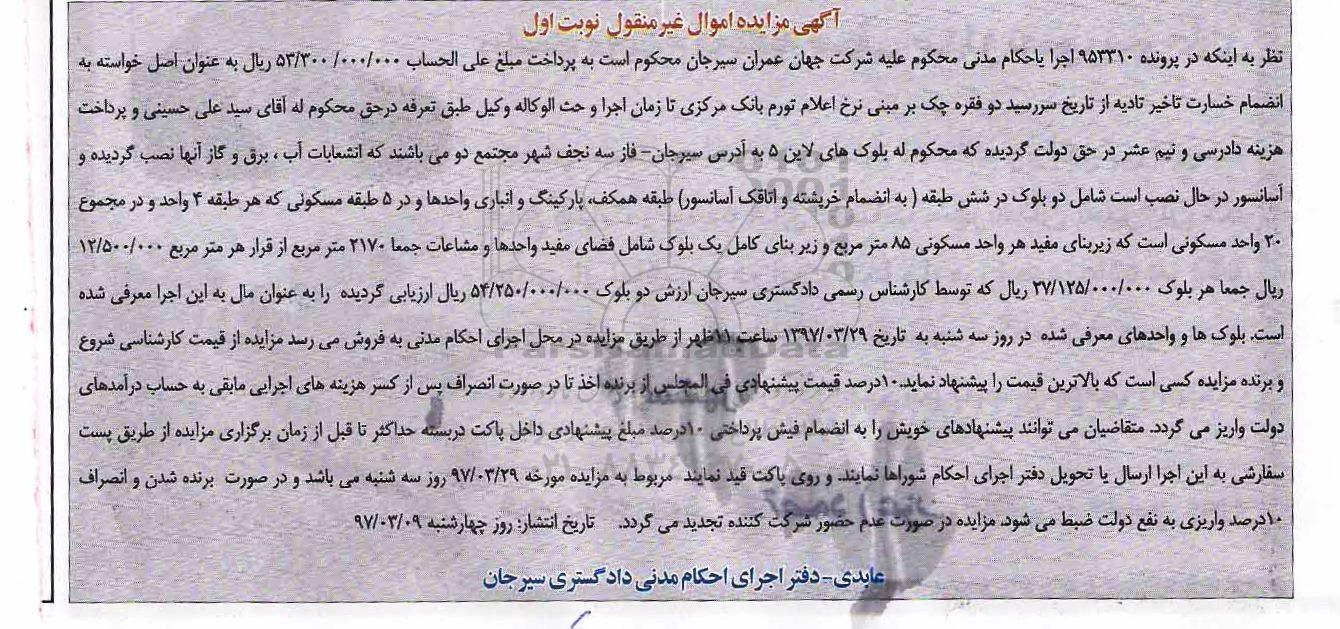 آگهی مزایده اموال غیرمنقول نوبت اول
نظر به اینکه در پرونده ۹۵۳۳۱۰ اجرا یاحکام مدنی محکوم علیه شرکت جهان عمران سیرجان محکوم است به پرداخت مبلغ علی الحساب ۵۳/۳۰۰ /۰۰۰/۰۰۰ ریال به عنوان اصل خواسته به
انضمام خسارت تاخیر تادیه از تاریخ سررسید دو فقره چک بر مبنی نرخ اعلام تورم بانک مرکزی تا زمان اجرا و حث الوکاله وکیل طبق تعرفه درحق محکوم له آقای سید علی حسینی و پرداخت
هزینه دادرسی و نیم عشر در حق دولت گردیده که محکوم له بلوک های لاین ۵ به آدرس سیرجان- فاز سه نجف شهر مجتمع دو می باشند که انشعابات آب ، برق و گاز آنها نصب گردیده و
آسانسور در حال نصب است شامل دو بلوک در شش طبقه ( به انضمام خرپشته و اتاقک آسانسور) طبقه همکف، پارکینگ و انباری واحدها و در ۵ طبقه مسکونی که هر طبقه ۴ واحد و در مجموع
۲۰ واحد مسکونی است که زیربنای مفید هر واحد مسکونی ۸۵ متر مربع و زیر بنای کامل یک بلوک شامل فضای مفید واحدها و مشاعات جمعا ۲۱۷۰ متر مربع از قرار هر متر مربع ۱۲/۵۰۰/۰۰۰
ریال جمعا هر بلوک ۲۷/۱۲۵/۰۰۰/۰۰۰ ریال که توسط کارشناس رسمی دادگستری سیرجان ارزش دو بلوک ۵۴/۲۵۰/۰۰۰/۰۰۰ ریال ارزیابی گردیده را به عنوان مال به این اجرا معرفی شده
است. بلوک ها و واحدهای معرفی شده در روز سه شنبه به تاریخ ۱۳۹۷/۰۳/۲۹ ساعت ۱۱ظهر از طریق مزایده در محل اجرای احکام مدنی به فروش می رسد مزایده از قیمت کارشناسی شروع
و برنده مزایده کسی است که بالاترین قیمت را پیشنهاد نماید.۱۰درصد قیمت پیشنهادی فی المجلس از برنده اخذ تا در صورت انصراف پس از کسر هزینه های اجرایی مابقی به حساب درآمدهای
دولت واریز می گردد. متقاضیان می توانند پیشنهادهای خویش را به انضمام فیش پرداختی ۱۰درصد مبلغ پیشنهادی داخل پاکت دربسته حداکثر تا قبل از زمان برگزاری مزایده از طریق پست
سفارشی به این اجرا ارسال یا تحویل دفتر اجرای احکام شوراها نمایند. و روی پاکت قید نمایند مربوط به مزایده مورخه ۹۷/۰۳/۲۹ روز سه شنبه می باشد و در صورت برنده شدن و انصراف
۱۰درصد واریزی به نفع دولت ضبط می شود. مزایده در صورت عدم حضور شرکت کننده تجدید می گردد. تاریخ انتشار: روز چهارشنبه ۹۷/۰۳/۰۹
عابدی- دفتر اجرای احکام مدنی دادگستری سیرجان